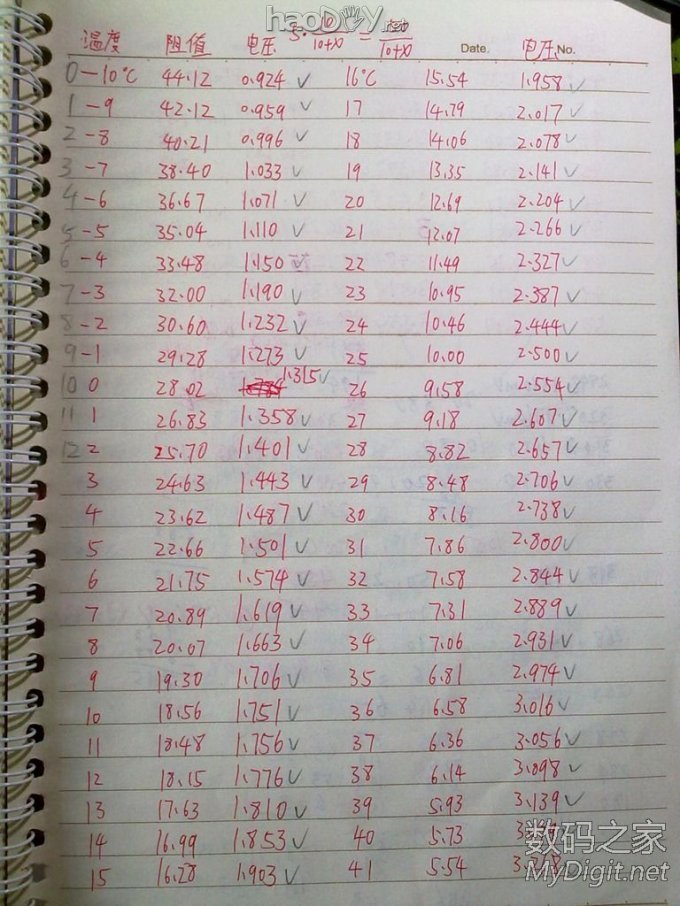 haoDIY.net
5·10/10+X = 50/10+X
温度 阻值 电压 Date. 电压 No.
0 -10℃ 44.12 0.924 ✓ 16℃ 15.54 1.958 ✓
1 -9 42.12 0.959 ✓ 17 14.79 2.017 ✓
2 -8 40.21 0.996 ✓ 18 14.06 2.078 ✓
3 -7 38.40 1.033 ✓ 19 13.35 2.141 ✓
4 -6 36.67 1.071 ✓ 20 12.69 2.204 ✓
5 -5 35.04 1.110 ✓ 21 12.07 2.266 ✓
6 -4 33.48 1.150 22 11.49 2.327 ✓
7 -3 32.00 1.190 ✓ 23 10.95 2.387 ✓
8 -2 30.60 1.232 ✓ 24 10.46 2.444 ✓
9 -1 29.28 1.273 ✓ 25 10.00 2.500 ✓
10 0 28.02 1.315 ✓ 26 9.58 2.554 ✓
11 1 26.83 1.358 ✓ 27 9.18 2.607 ✓
12 2 25.70 1.401 ✓ 28 8.82 2.657 ✓
3 24.63 1.443 ✓ 29 8.48 2.706 ✓
4 23.62 1.487 ✓ 30 8.16 2.738 ✓
5 22.66 1.501 ✓ 31 7.86 2.800 ✓
6 21.75 1.574 ✓ 32 7.58 2.844 ✓
7 20.89 1.619 ✓ 33 7.31 2.889 ✓
8 20.07 1.663 ✓ 34 7.06 2.931 ✓
9 19.30 1.706 ✓ 35 6.81 2.974 ✓
10 18.56 1.751 ✓ 36 6.58 3.016 ✓
11 18.48 1.756 ✓ 37 6.36 3.056 ✓
12 18.15 1.776 ✓ 38 6.14 3.098 ✓
13 17.63 1.810 ✓ 39 5.93 3.139 ✓
14 16.99 1.853 ✓ 40 5.73
15 16.28 1.903 ✓ 41 5.54
数码之家
MyDigit.net